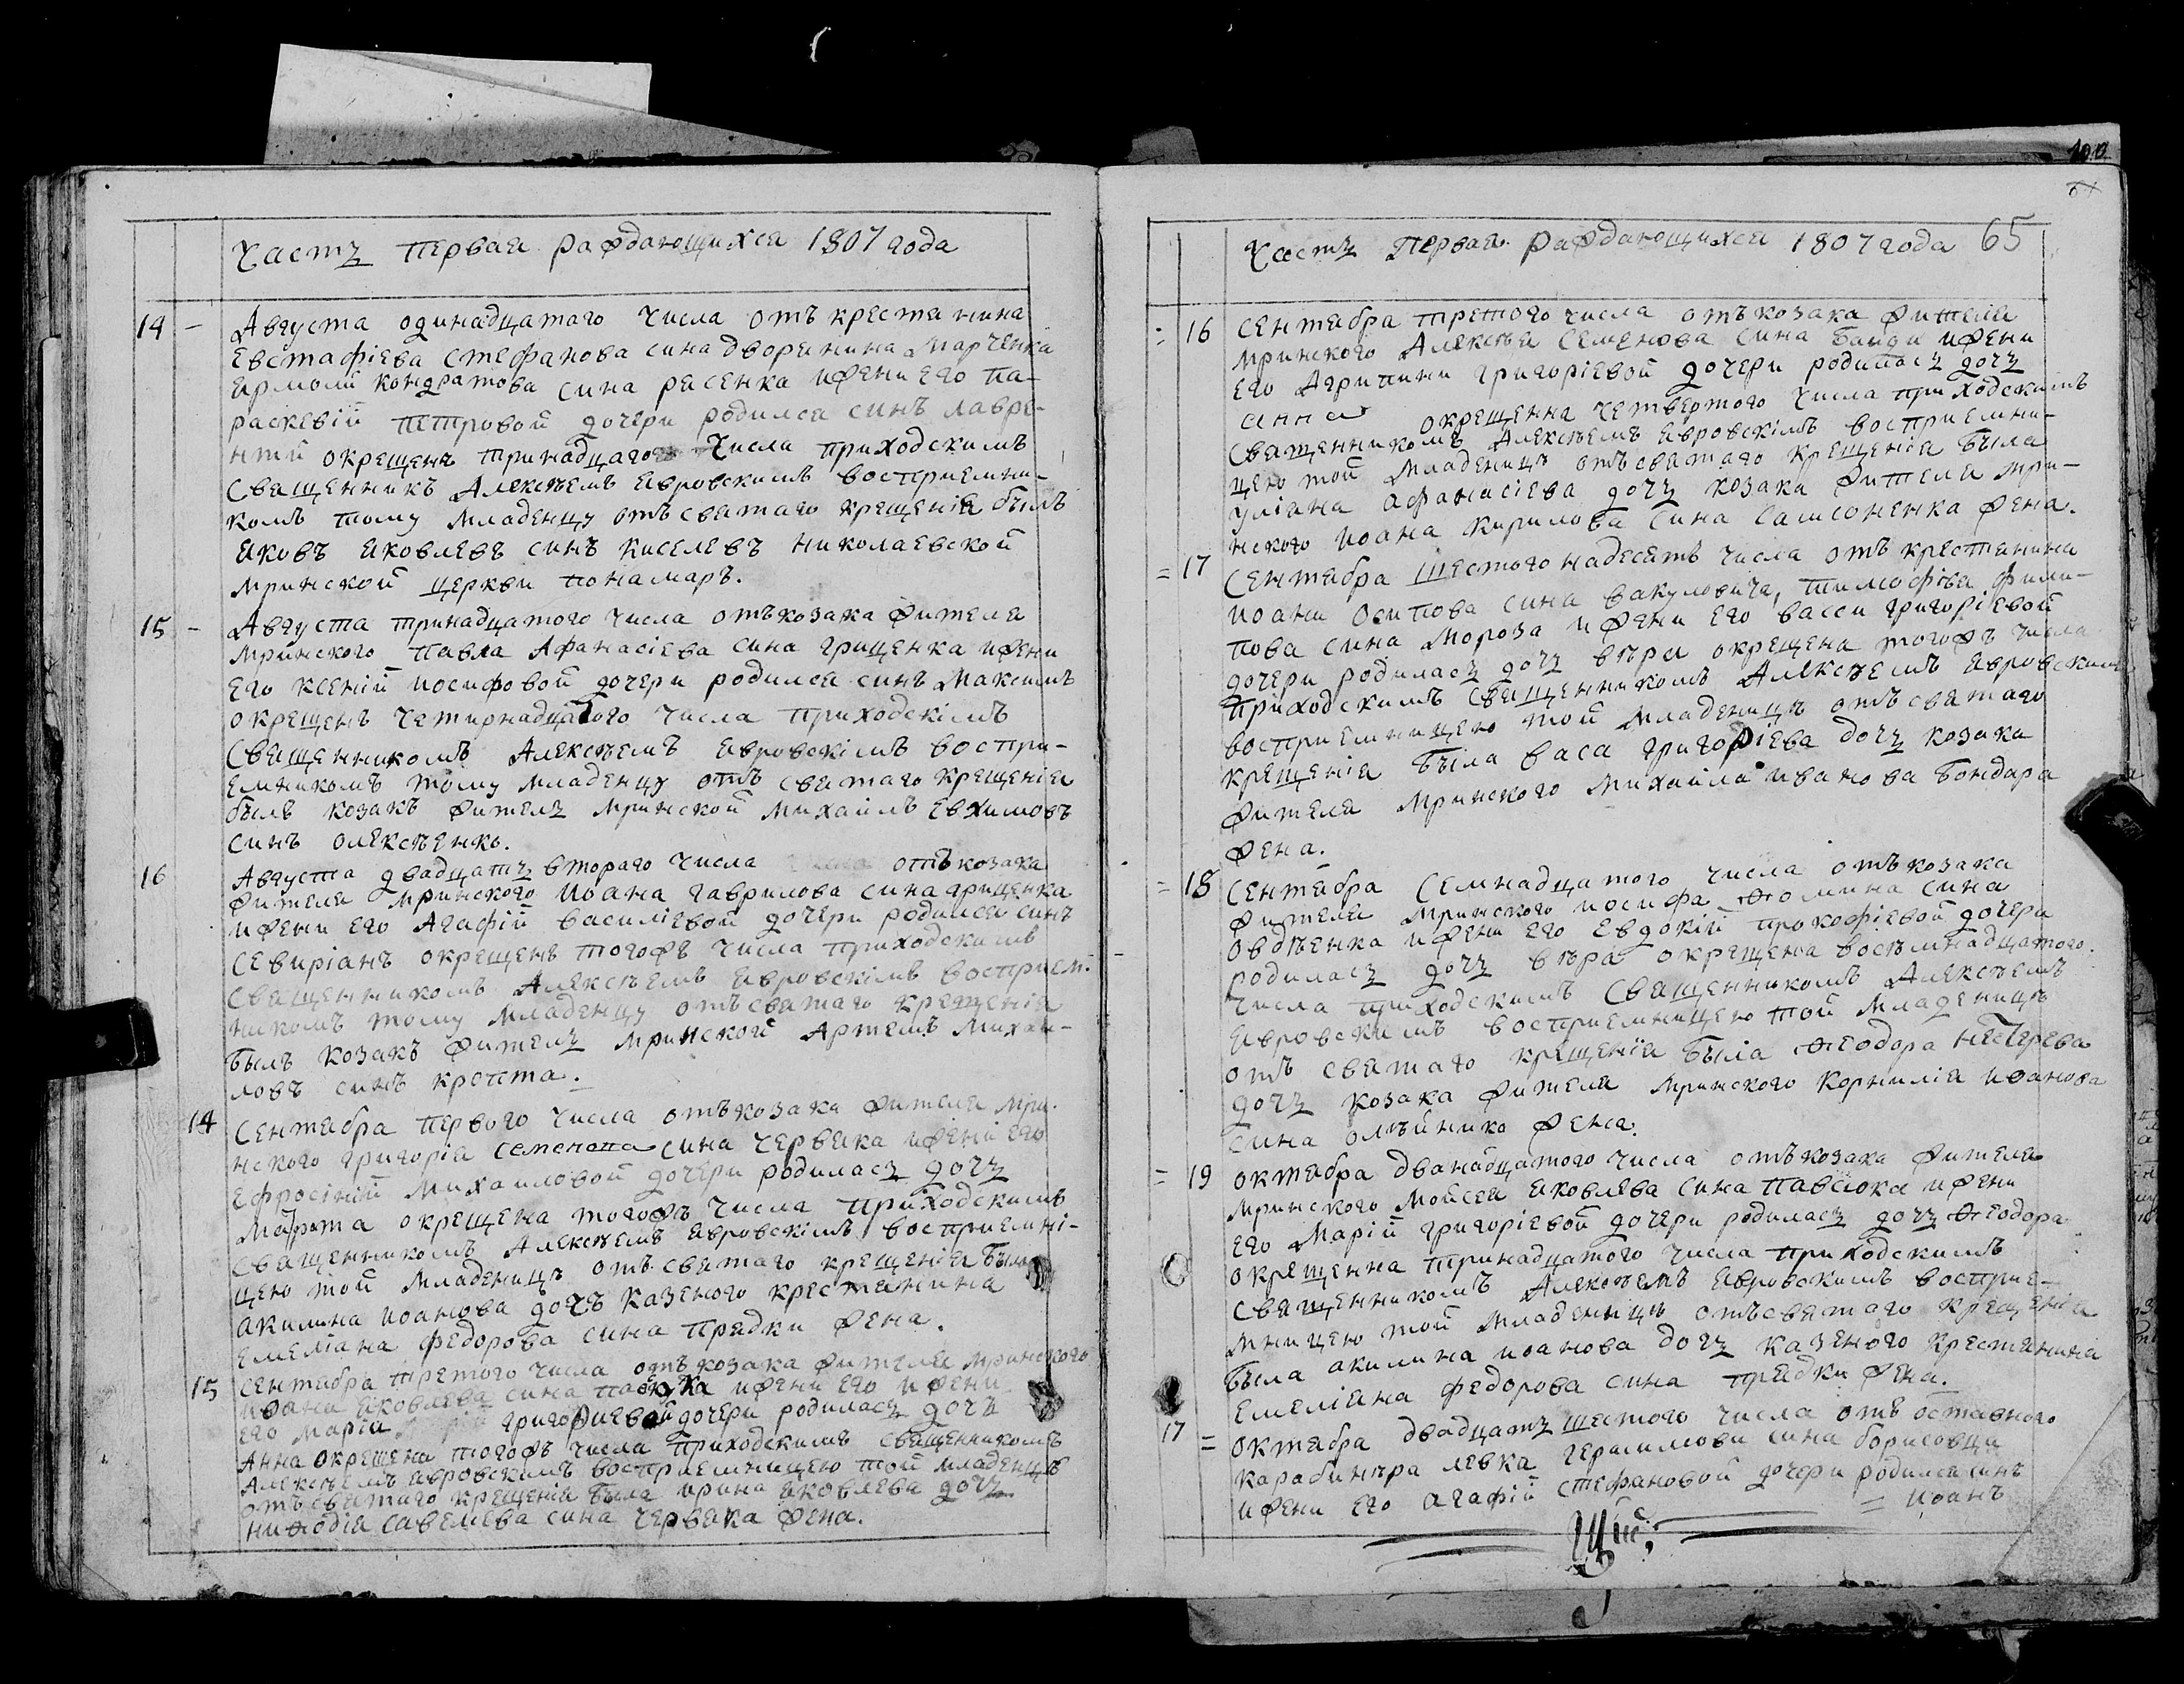 Часть первая раждающихся 1807 года
14 – Августа одинадцатаго числа отъ крестянина
Евстафіева Стефанова сина дворянина Марченка
Ярмоли кондратова сина расенка ижени Его Па-
раскевіи Петровой дочери родился синъ лавре-
нтій окрещенъ тринадцатаго числа приходскимъ
Священникъ Алексѣемъ Явровскимъ восприемни-
комъ тому младенцу отъ святаго крещенія былъ
Яковъ Яковлевъ синъ Киселевъ николаевской
мринской церкви понамаръ.
15 – Августа тринадцатого числа отъ козака жителя
мринского Павла Афанасіева сина грищенка ижени
Его Ксеніи иосифовой дочери родился синъ Максимъ
окрещенъ четирнадцатого числа приходскімъ
Священникомъ Алексѣемъ Явровскімъ воспри-
емникомъ тому младенцу отъ святаго крещенія
былъ козакъ житель мринской Михаилъ Евхимовъ
синъ олексѣенко.
16 Августа двадцать втораго числа отъ козака
жителя мринского Иоана гаврилова сина грищенка
ижени Его Агафіи василіевой дочери родился синъ
Севиріанъ окрещенъ тогожъ числа приходскимъ
Священникомъ Алексѣемъ Явровскімъ восприем-
никомъ тому младенцу отъ святаго крещенія
былъ козакъ житель мринской Артемъ Михаи-
ловъ синъ кропта.
14 Сентября первого числа отъ козака жителя мри-
нского григорія семенова сина червяка ижени Его
Ефросініи Михаиловой дочери родилась дочь
Марфа окрещена тогожъ числа приходскимъ
Священникомъ Алексѣемъ Явровскімъ восприемні-
цею той младеницѣ отъ святаго крещенія была
акилина иоанова дочъ казеного крестянина
Емеліана федорова сина прядки жена.
15 Сентября третого числа отъ козака жителя мринского
ивана яковлева сина павлюка ижени Его ижени
Его Марія григориевой дочери родилась дочь
Анна окрещена тогожъ числа приходскимъ священникомъ
Алексѣемъ Явровскимъ восприемницею той младеницѣ
отъ святаго крещенія была ирина яковлева дочь
нифодія савелиева сина червяка жена.
100
Часть Первая раждающихся 1807 года 65
: 16 Сентября третого числа отъ козака жителя
мринского Алексѣя Семенова сина Банди ижени
Его Агрипини григоріевой дочери родилась дочь
анна окрещенна четвертого числа приходскимъ
Священникомъ Алексѣемъ Явровскімъ восприемни-
цею той младеницѣ отъ святаго крещенія была
уліана афанасіева дочь козака жителя мри-
нского иоана кирилова сина самсоненка жена.
= 17 Сентября шестого надесять числа отъ крестянина
иоани осипова сина вакуловича, тимофѣва фили-
пова сина мороза ижени Его васси григоріевой
дочери родилась дочь вѣра окрещена тогожъ числа
приходскимъ священникомъ Алексѣемъ Явровскимъ
восприемницею той младеницѣ отъ святаго
крещенія была васа григоріева дочь козака
жителя мринского михаила иванова Бондара
жена.
= 18 Сентября семнадцатого числа отъ козака
жителя мринского иосифа Ѳомина сина
овдѣенка ижени Его Евдокіи прокофіевой дочери
родилась дочь вѣра окрещена восѣмнадцатого
числа приходскимъ священникомъ Алексѣемъ
Явровскимъ восприемницею той младеницѣ
отъ святаго крещенія была Ѳеодора нестерева
дочь козака жителя мринского корниліа иоанова
сина олѣйнико жена.
= 19 октября дванадцатого числа отъ козака жителя
мринского мойсея яковлева сина павлюка ижени
Его Маріи григоріевой дочери родилась дочь Ѳеодора
окрещенна тринадцатого числа приходскимъ
Священникомъ Алексѣемъ Явровскимъ восприе-
мницею той младеницѣ отъ святаго крещенія
была акилина иоанова дочь казеного крестянина
Емеліана федорова сина прядки жена.
17 = октября двадцать шестого числа отъ оставного
карабинѣра левка герасимови сина борисовца
ижени Его агафіи стефановой дочери родился синъ
= иоанъ